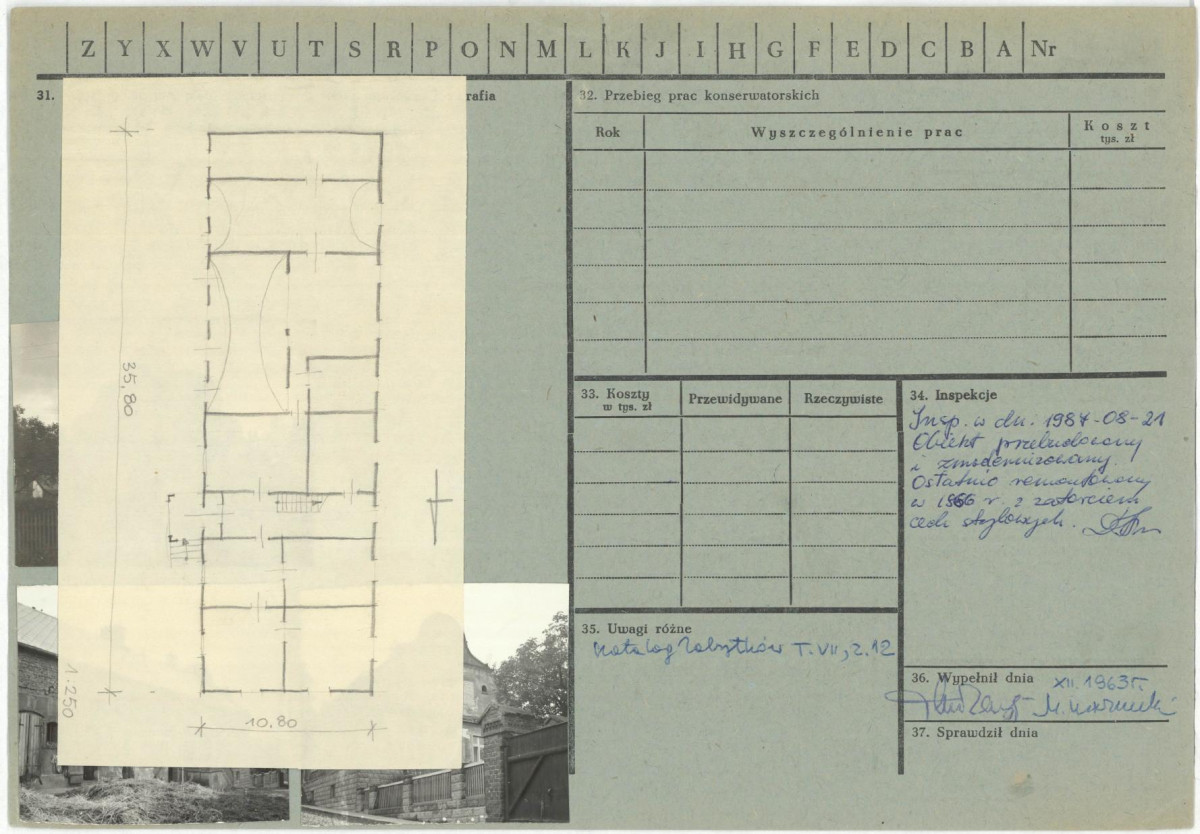 Z Y X W V U T S R P O N M L K J I H G F E D C B A Nr
31.
rafia
35,80
10,80
1:250
32. Przebieg prac konserwatorskich
Rok Wyszczególnienie prac Koszt
tys. zł
33. Koszty
w tys. zł
Przewidywane Rzeczywiste
34. Inspekcje
Insp. w dn. 1984-08-21
Obiekt przebudowany
i zmodernizowany.
Ostatnio remontowany
w 1966 r. z zatarciem
cech stylowych.
35. Uwagi różne
Katalog Zabytków T. VII, z. 12
36. Wypełnił dnia XII. 1963 r.
M.
37. Sprawdził dnia